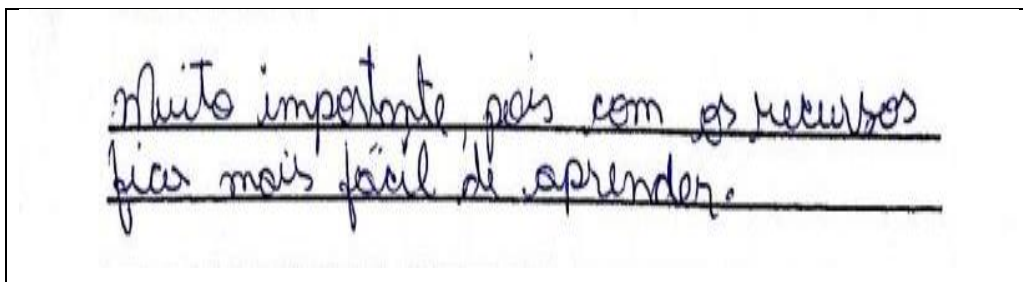 Muito importante, pois com os recursos
fica mais fácil de aprender.